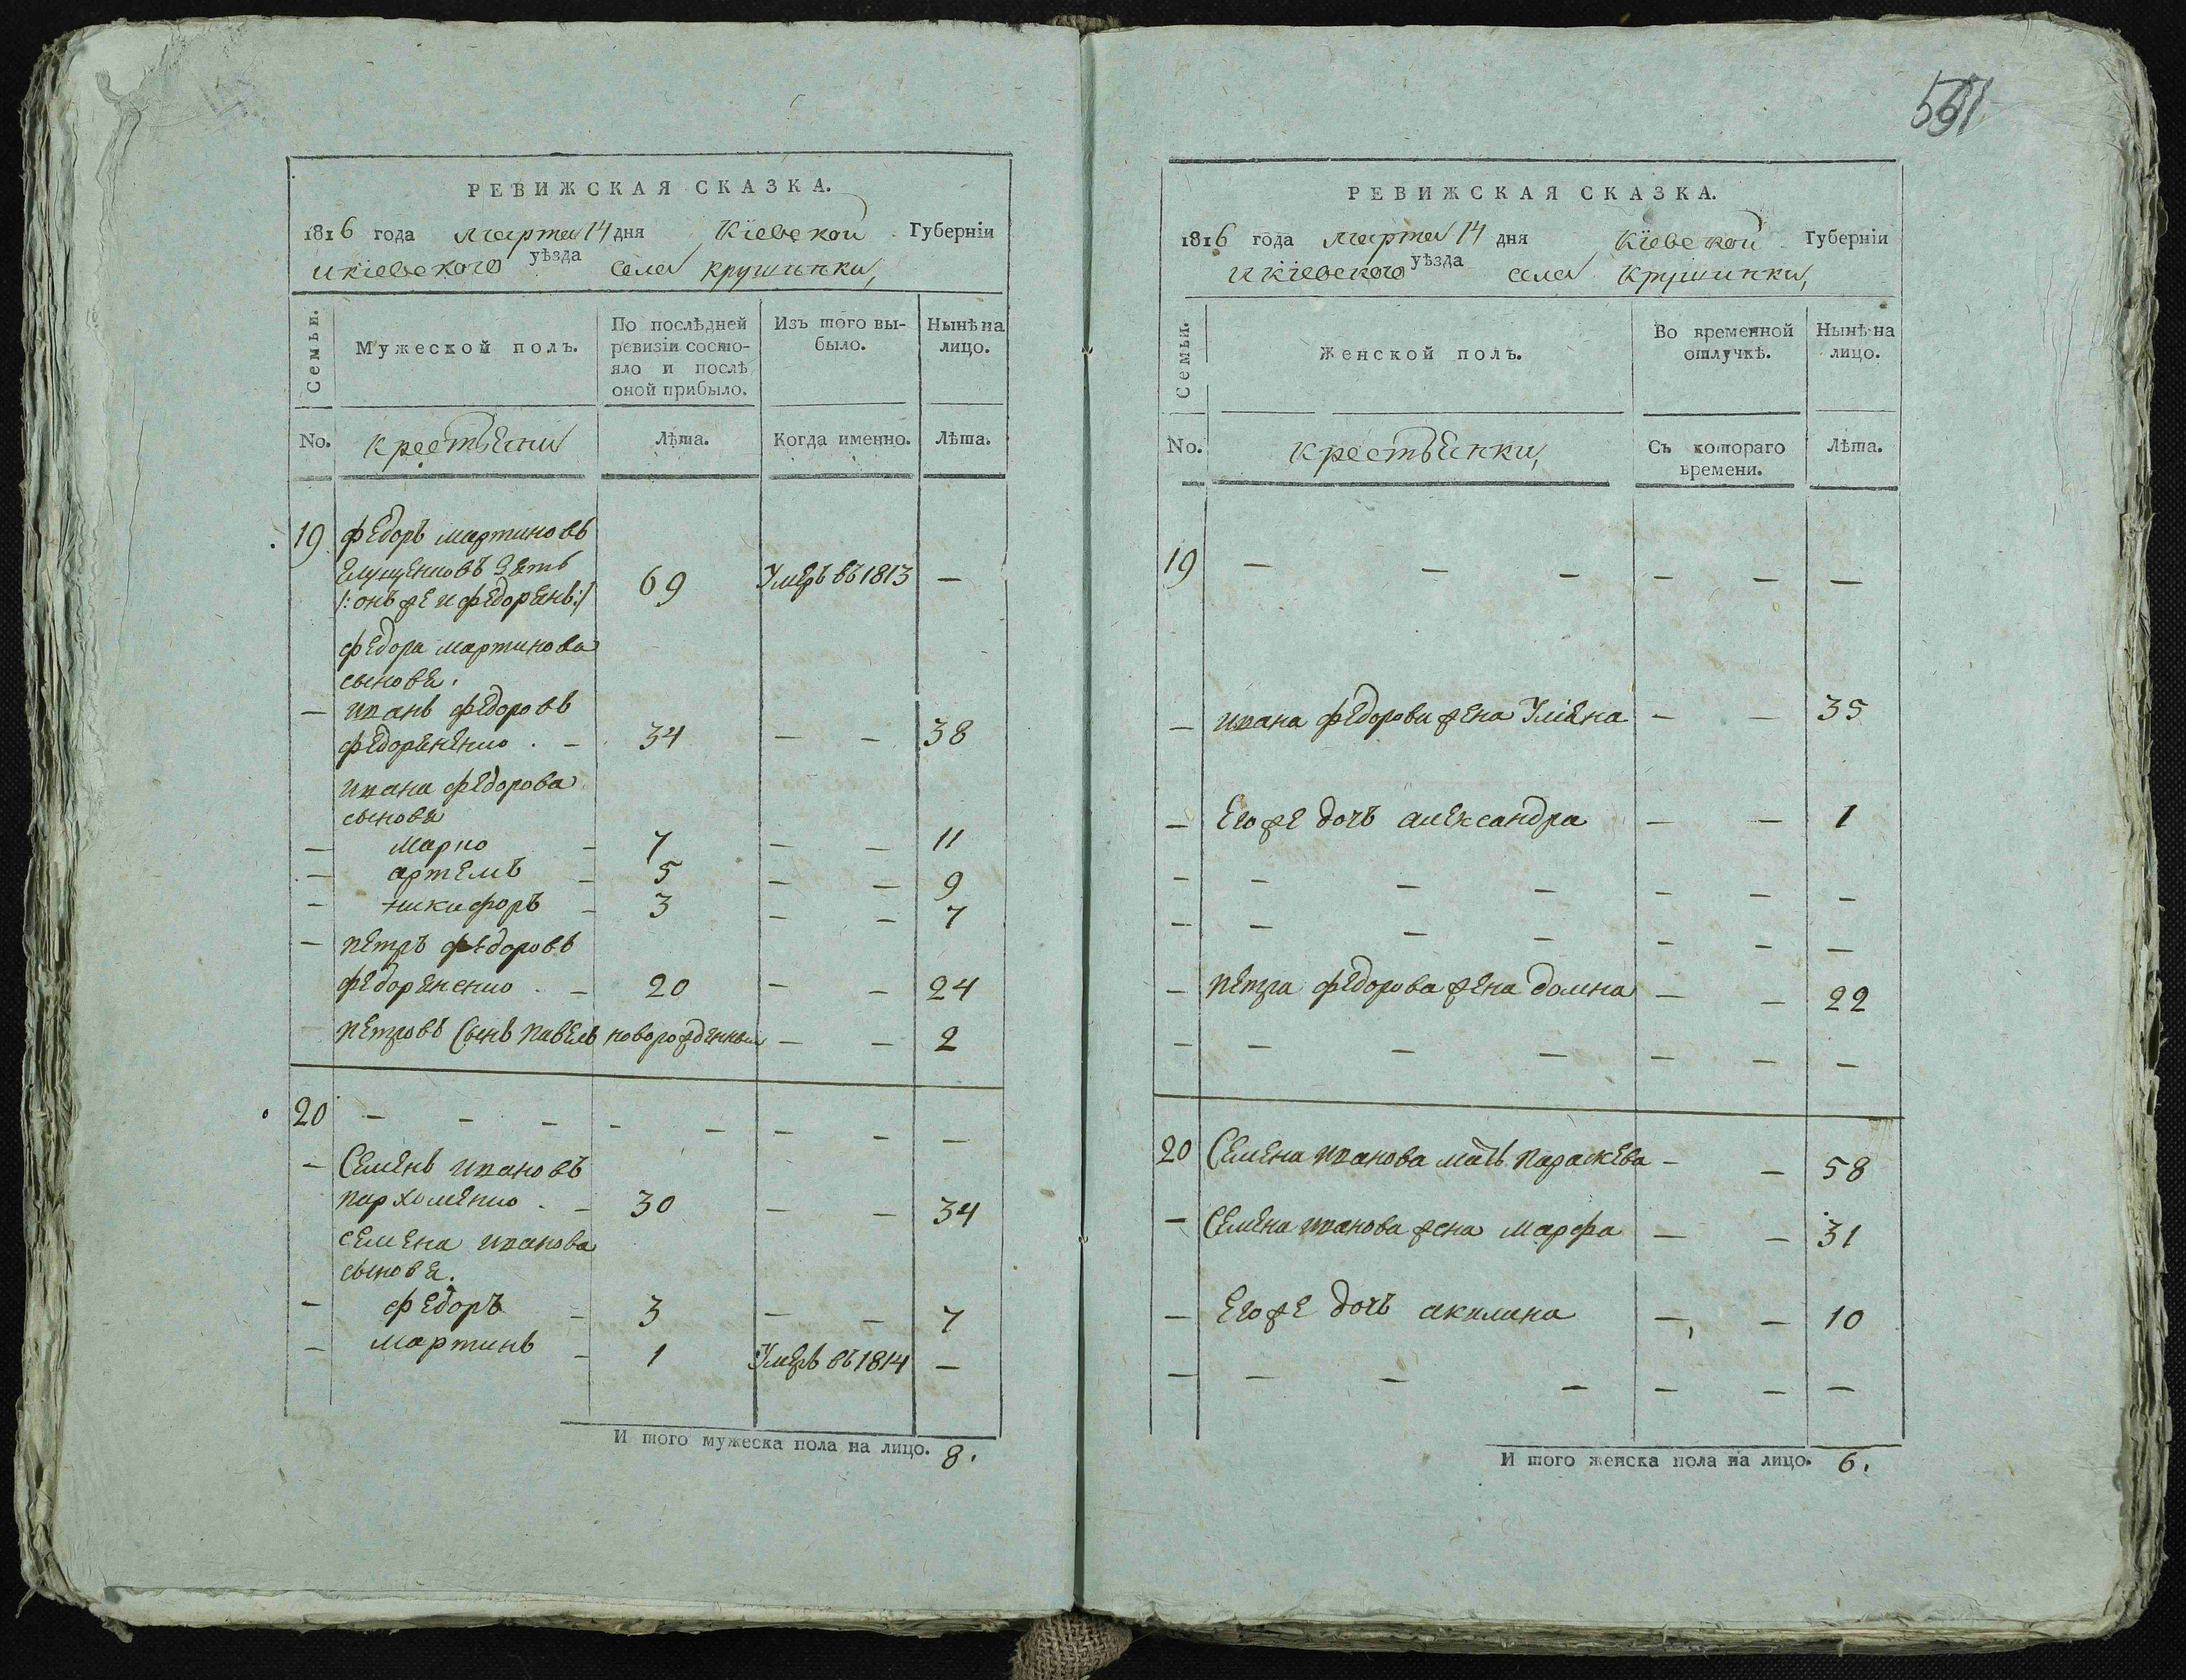 РЕВИЖСКАЯ СКАЗКА.
1816 года марта 14 дня Кіевской Губерніи
и кіевского уѣзда села крушинки,
Семьи. Мужеской полъ. По послѣдней ревизіи состояло и послѣ оной прибыло. Изъ того выбыло. Нынѣ на лицо.
No. крестьяни Лѣта. Когда именно. Лѣта.
19 федоръ мартиновъ
зять
/: онъ же и :/ 69 Умеръ въ 1813 —
федора мартинова
сыновя.
— иванъ федоровъ
федоренко . — 34 — — 38
ивана федорова
сыновя
— марко — 7 — — 11
— артемъ — 5 — — 9
— никифоръ — 3 — — 7
— петръ федоровъ
федоренко . — 20 — — 24
петровъ сынъ павелъ новорожденный — — 2
20 — — — — — — — —
— Семенъ ивановъ
пархоменко . — 30 — — 34
семена иванова
сыновя.
— федоръ — 3 — — 7
— мартинъ — 1 Умеръ въ 1814 —
И того мужеска пола на лицо. 8.
РЕВИЖСКАЯ СКАЗКА.
1816 года марта 14 дня Кіевской Губерніи
и кіевского уѣзда села крушинки,
Семьи. Женской полъ. Во временной отлучкѣ. Нынѣ на лицо.
No. крестьянки, Съ котораго времени. Лѣта.
19 — — — — — —
— ивана федорова жена Уліяна — — 35
— Его же дочь александра — — 1
— — — — — — —
— — — — — — —
— петра федорова жена домна — — 22
— — — — — — —
20 Семена иванова мать параскева — — 58
— Семена иванова жена марфа — — 31
— Его же дочь акилина — — 10
— — — — — — —
И того женска пола на лицо. 6.